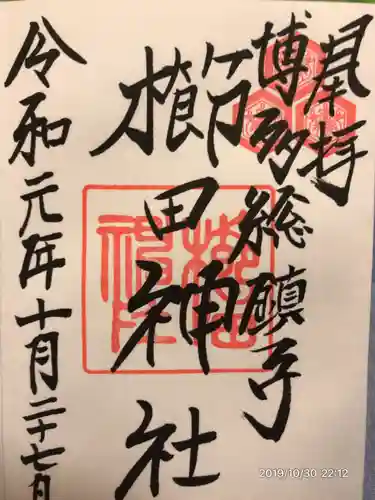 奉拝
博多総鎮守
櫛田神社
令和元年十月二十七日
櫛田
神社
2019/10/30 22:12